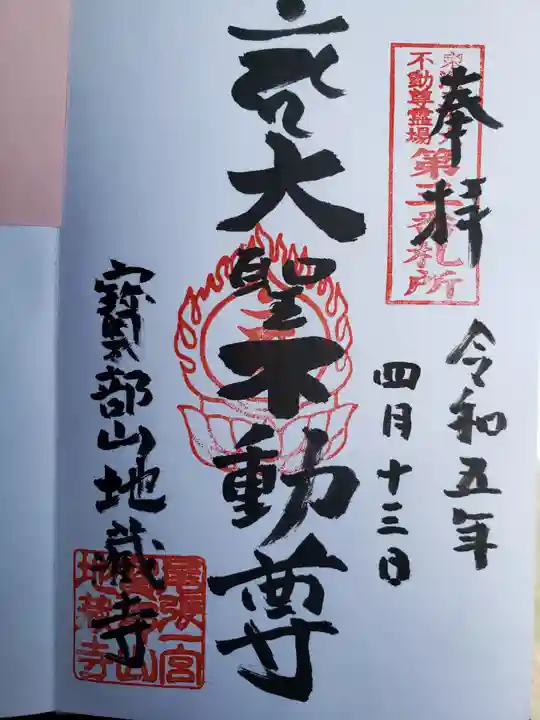 奉拝
不動尊霊場
第三番札所
令和五年
四月十三日
大聖不動尊
寳珠山地蔵寺
尾張一宮
地蔵寺